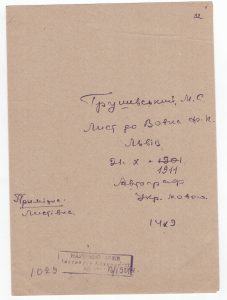 32
Грушевський, М. С
Лист до Вовка Ф. К.
Львів
21. X - 1901
1911
Автограф
Укр. мовою
1 арк
Примітка:
Листівка
1029